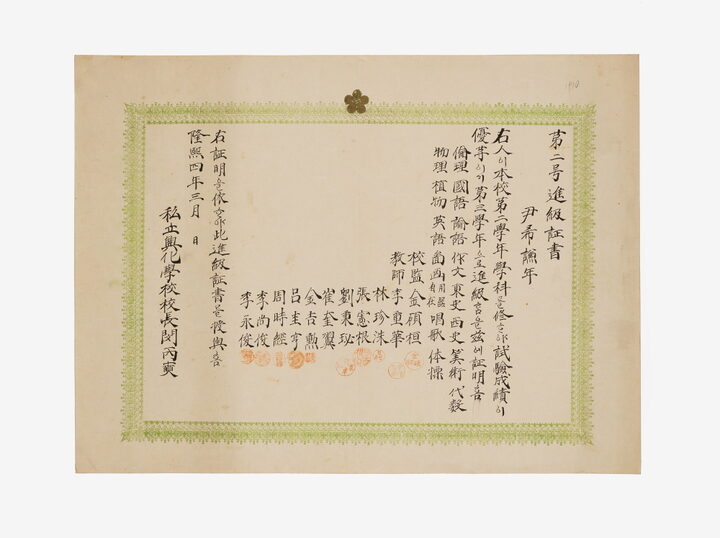 第二号 進級証書
尹希謙 年
右人이本校第二學年學科를修하야試驗成績이
優等이기第三學年으로進級홈을玆에証明홈
倫理 國語 論語 作文 東史 西史 算術 代數
物理 植物 英語 圖画 用器 自在 唱歌 体操
校監 金碩桓
教師 李重華
林珍洙
張憲根
劉秉珌
崔奎翼
金吉勲
呂圭亨
周時經
李尚俊
李永俊
右証明을依하야此進級証書를授與홈
隆熙四年三月 日
私立興化學校校長閔丙奭
1910